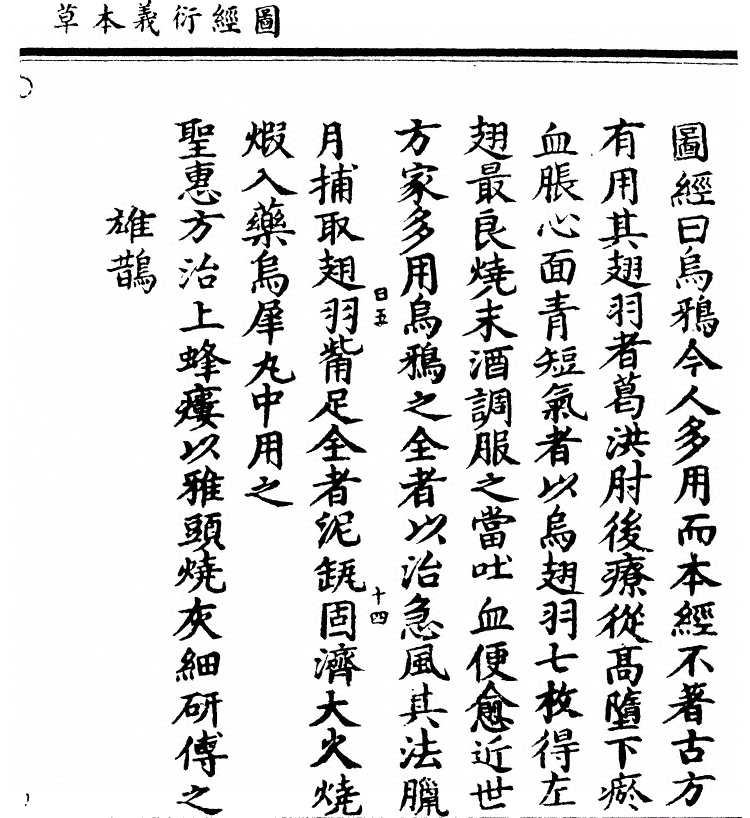 圖經衍義本草
圖經曰烏鴉今人多用而本經不著古方
有用其翅羽者葛洪肘後療從高墮下瘀
血脹心面青短氣者以烏翅羽七枚得左
翅最良燒末酒調服之當吐血便愈近世
方家多用烏鴉之全者以治急風其法臘
日五
十四
月捕取翅羽觜足全者泥缻固濟大火燒
煆入藥烏犀丸中用之
聖惠方治上蜂瘻以雅頭燒灰細研傅之
雄鵲